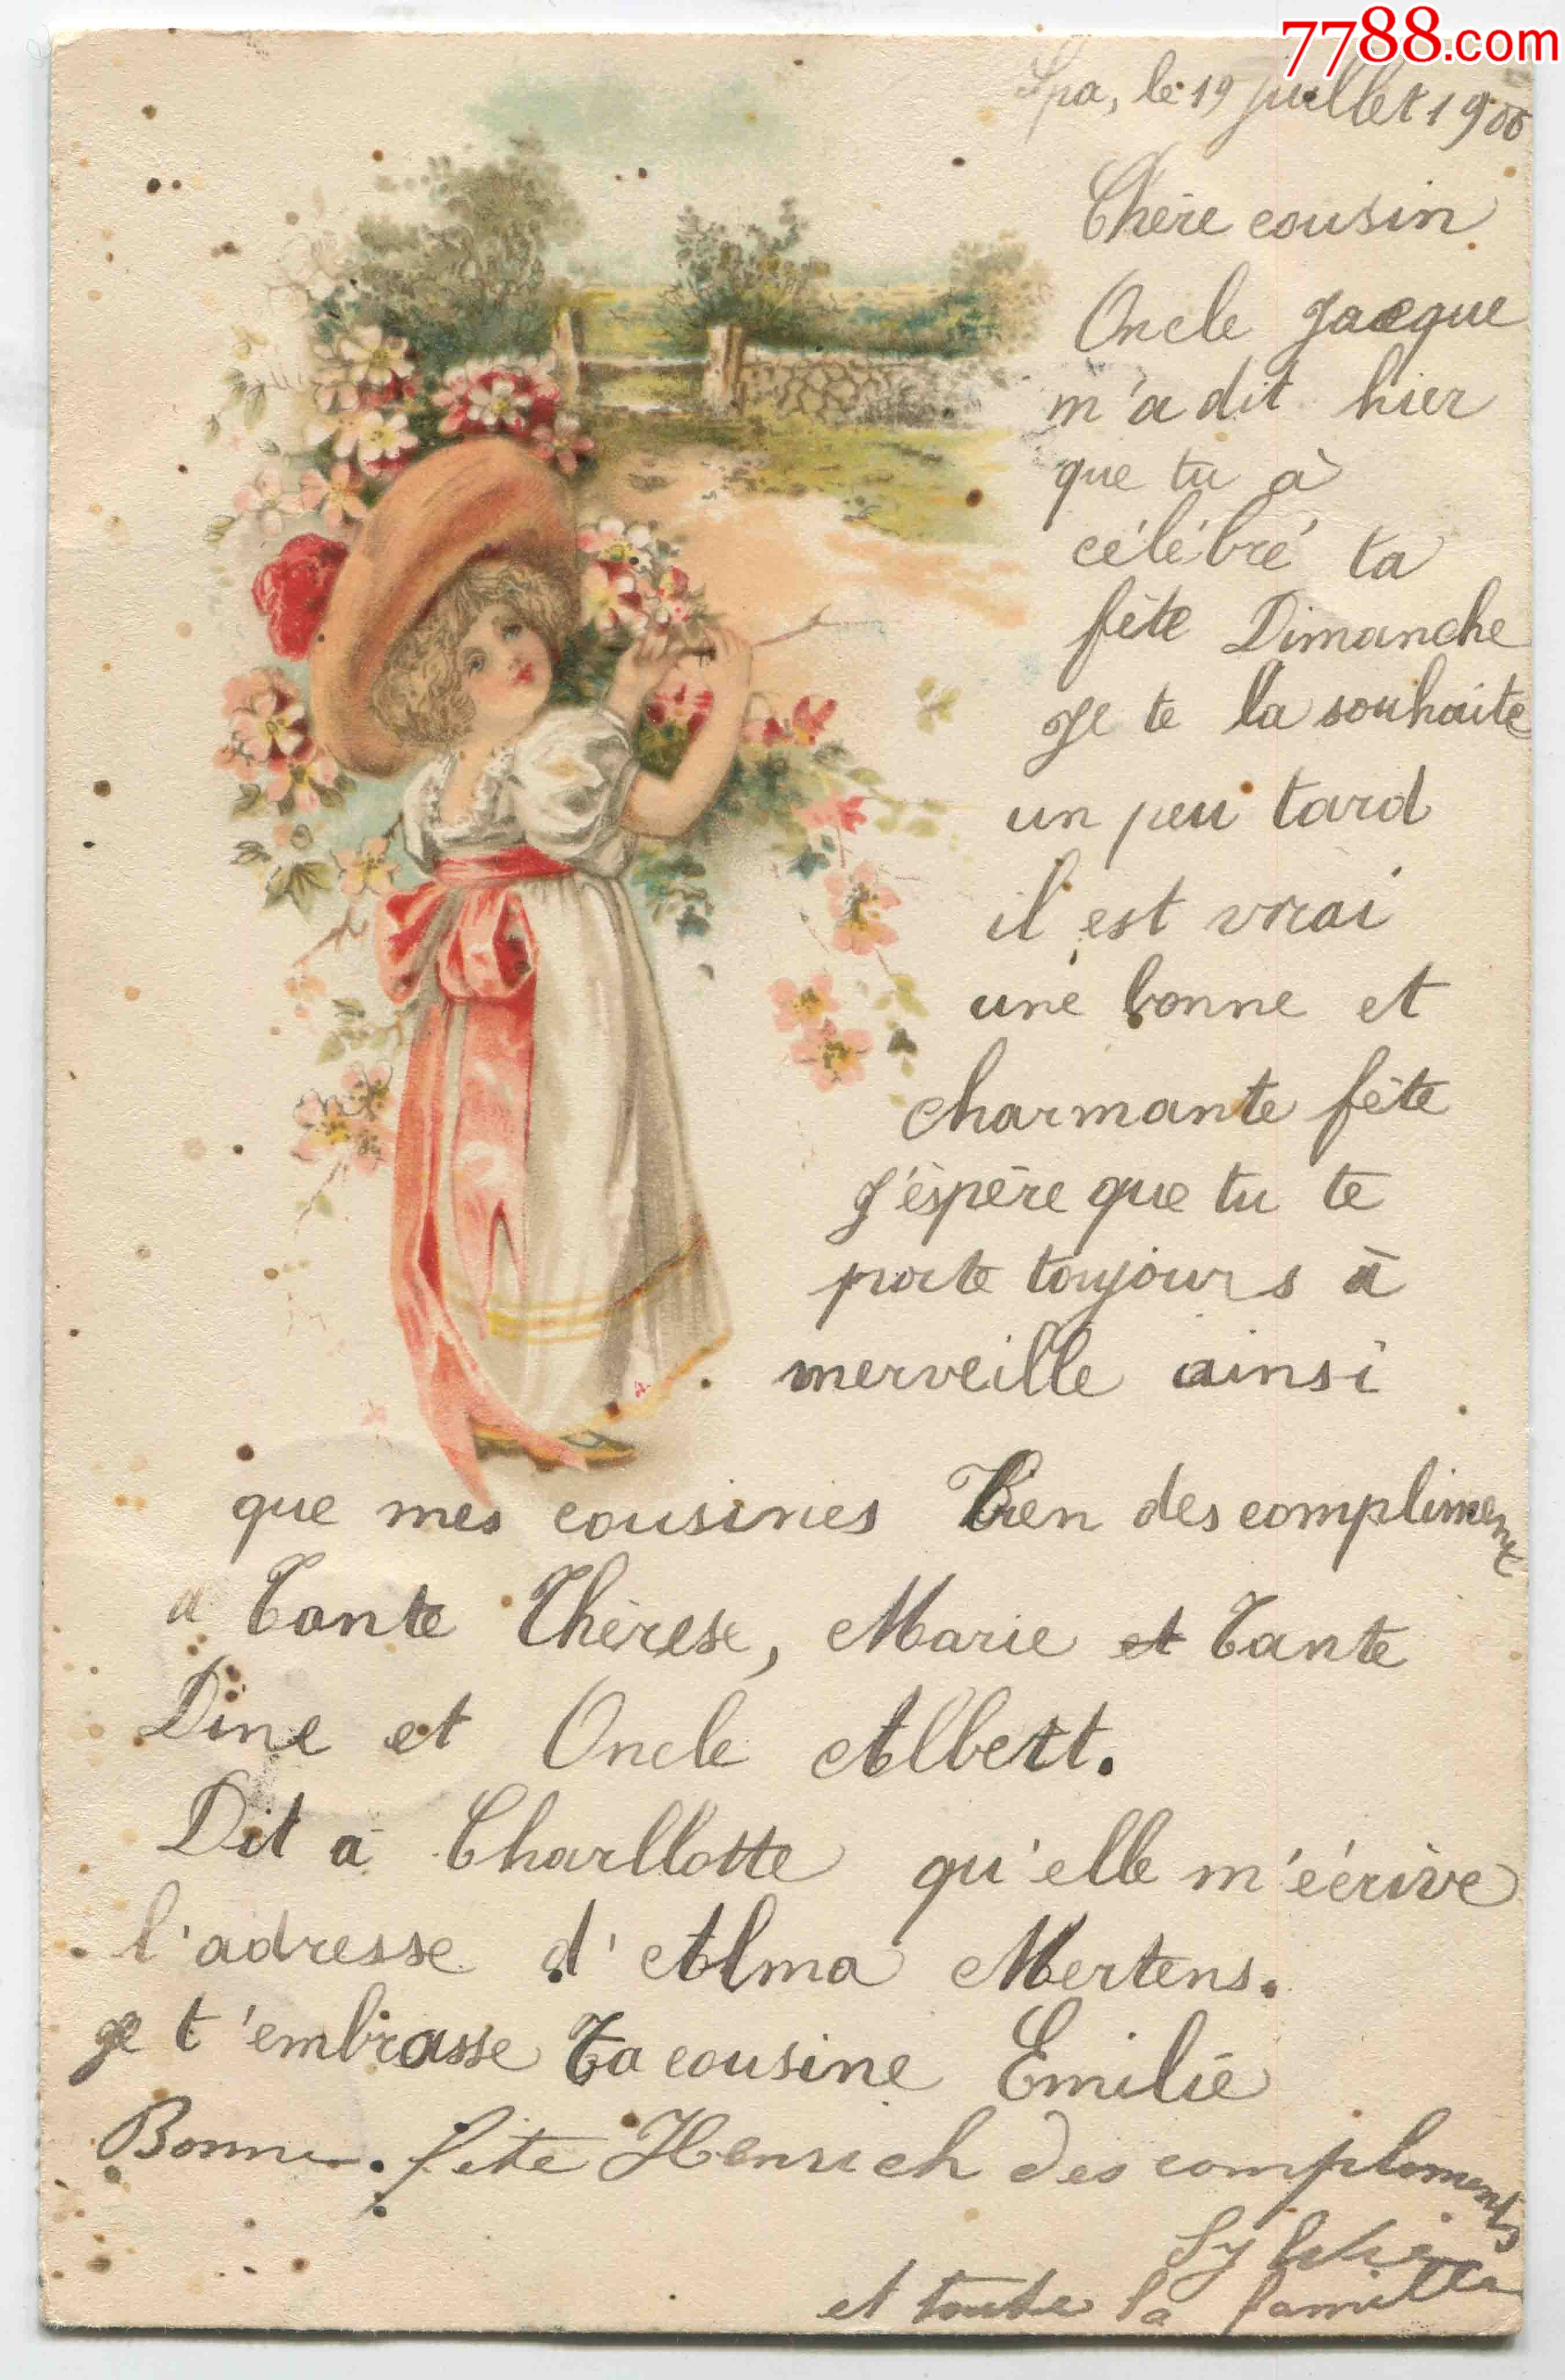 7788.com
Spa, le 19 juillet 1900
Chère cousin
Oncle Jacque
m'a dit hier
que tu à
célébré ta
fête Dimanche
Je te la souhaite
un peu tard
il est vrai
une bonne et
charmante fête
J'éspère que tu te
porte toujours à
merveille ainsi
que mes cousines Bien des compliment
a Tante Thèrese, Marie et Tante
Dine et Oncle Albert.
Dit a Charllotte qu'elle m'éérive
l'adresse d'Alma Mertens.
Je t'embrasse Ta cousine Emilie
Bonne fete Henrich des compliments
et toute la famille